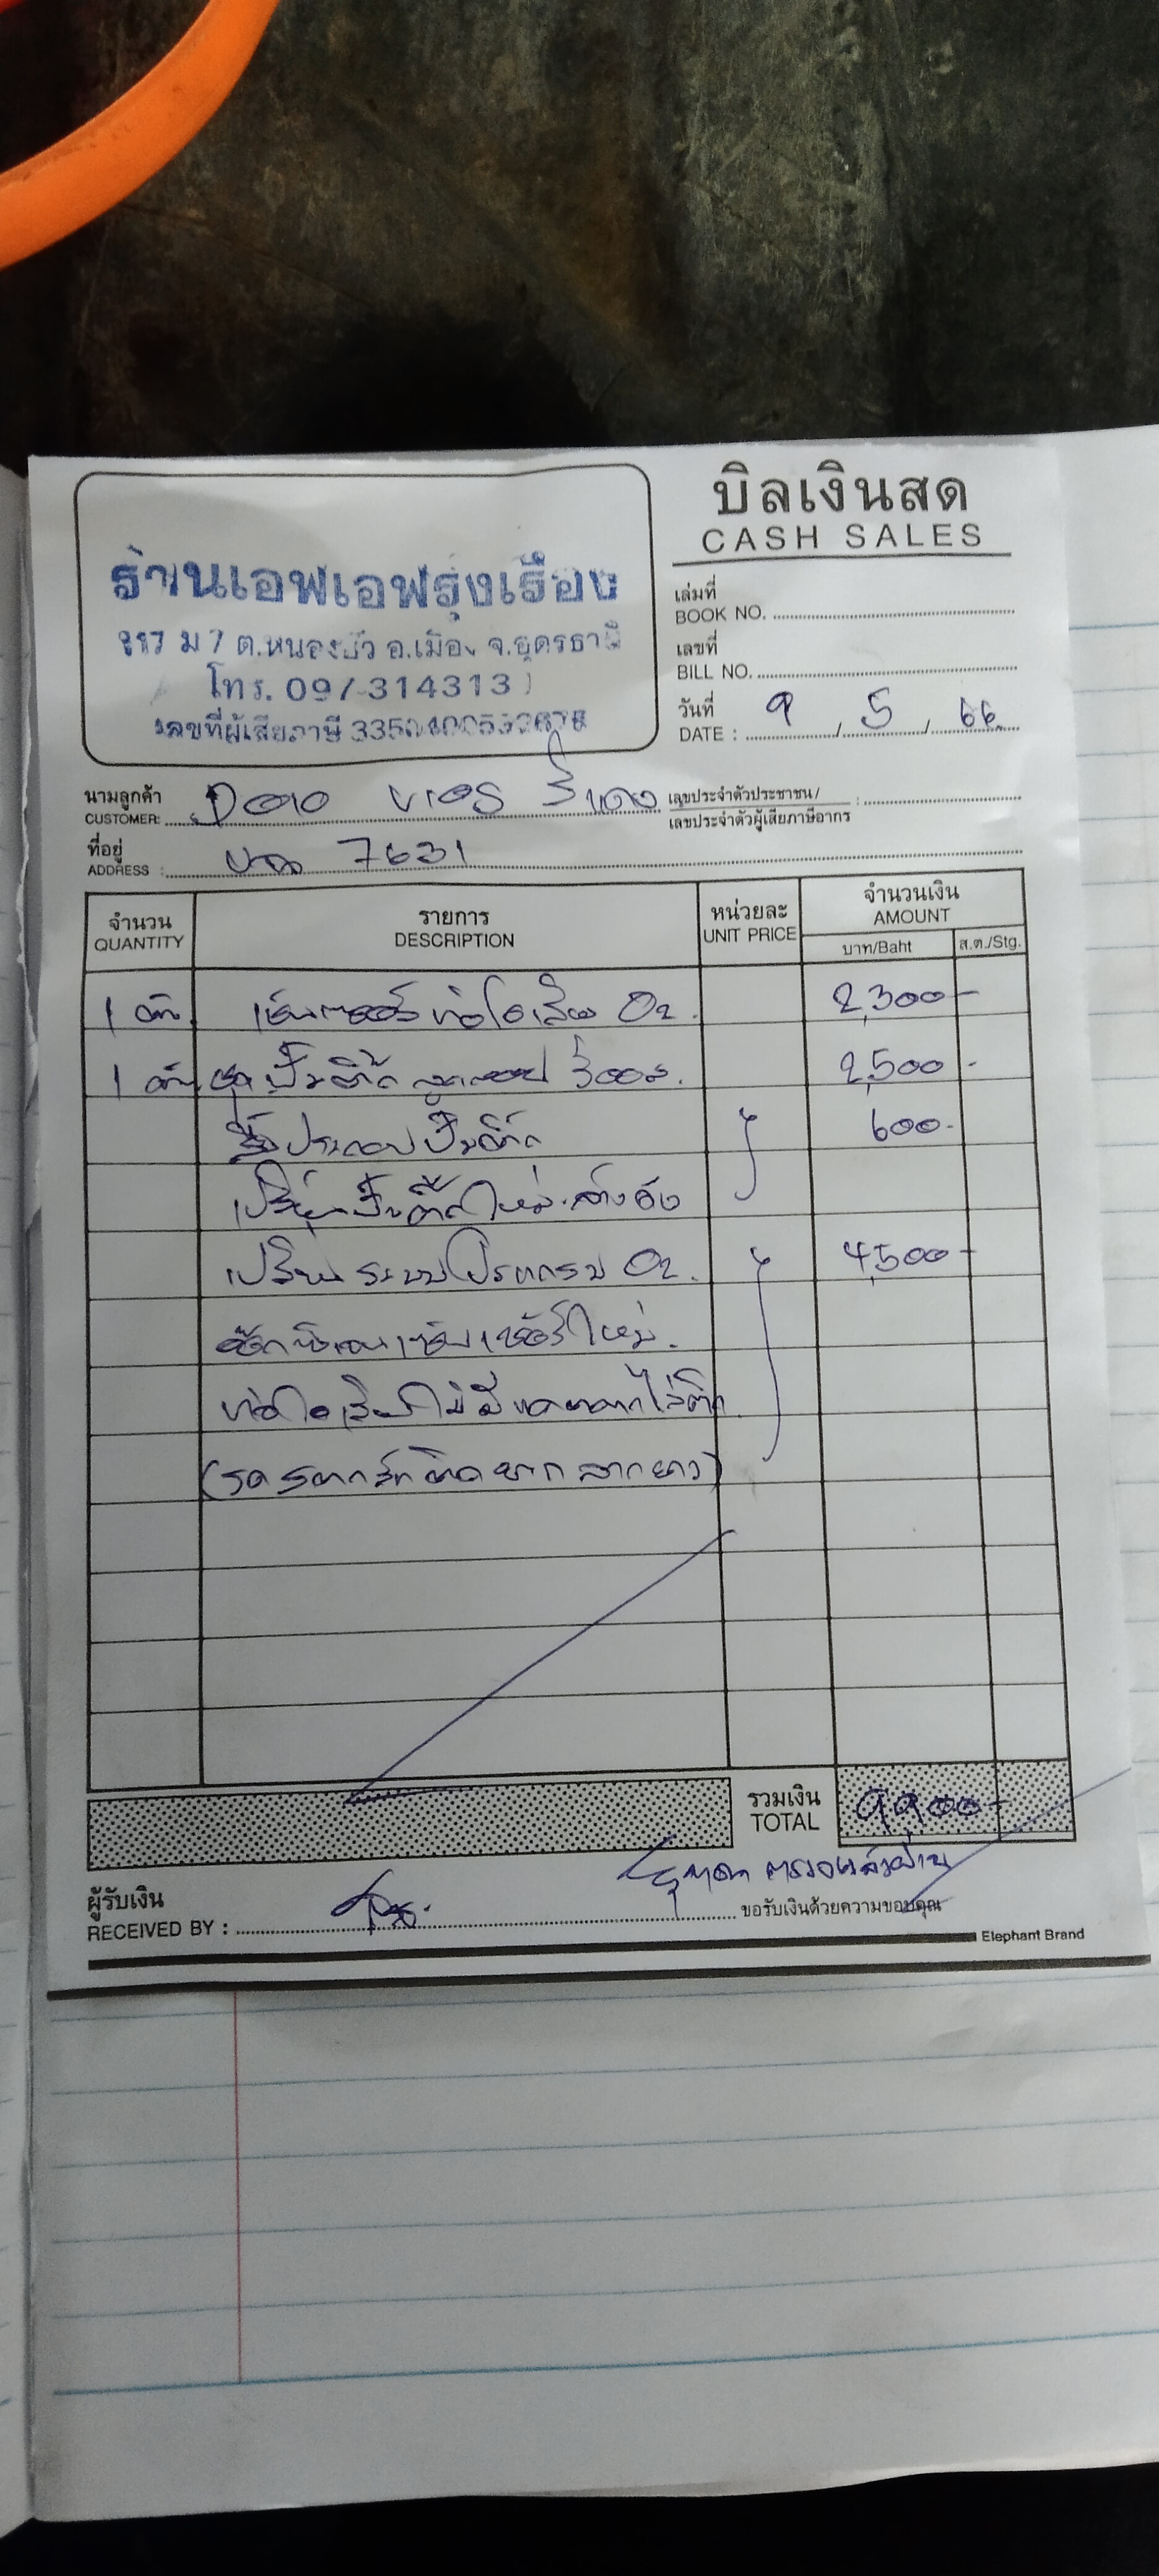 บิลเงินสด
CASH SALES
ร้านเอฟเอฟรุ่งเรือง
ม 7 ต.หนองบัว อ.เมือง จ.อุดรธานี
โทร. 097 314313
เลขที่ผู้เสียภาษี
เล่มที่
BOOK NO.
เลขที่
BILL NO.
วันที่
DATE : 9 / 5 / 66
นามลูกค้า
CUSTOMER: VIOS สีแดง
เลขประจำตัวประชาชน /
เลขประจำตัวผู้เสียภาษีอากร :
ที่อยู่
ADDRESS : 7631
จำนวน รายการ หน่วยละ จำนวนเงิน
QUANTITY DESCRIPTION UNIT PRICE AMOUNT
บาท/Baht ส.ต./Stg.
1 ตัว เซ็นเซอร์ ท่อไอเสีย O2. 2,300-
1 ตัว ชุดปั๊มติ๊ก ลูกลอย 2,500 -
ประกอบปั๊มติ๊ก 600-
เปลี่ยนปั๊มติ๊กใหม่ ล้างถัง
เปลี่ยน ระบบโปรแกรม O2. 4,500-
เซ็นเซอร์ใหม่.
ท่อไอเสียไม่มี
(รถสตาร์ทติดยาก ลากยาว)
รวมเงิน
TOTAL 9900-
ตรวจแล้วผ่าน
ผู้รับเงิน
RECEIVED BY : ขอรับเงินด้วยความขอบคุณ
Elephant Brand